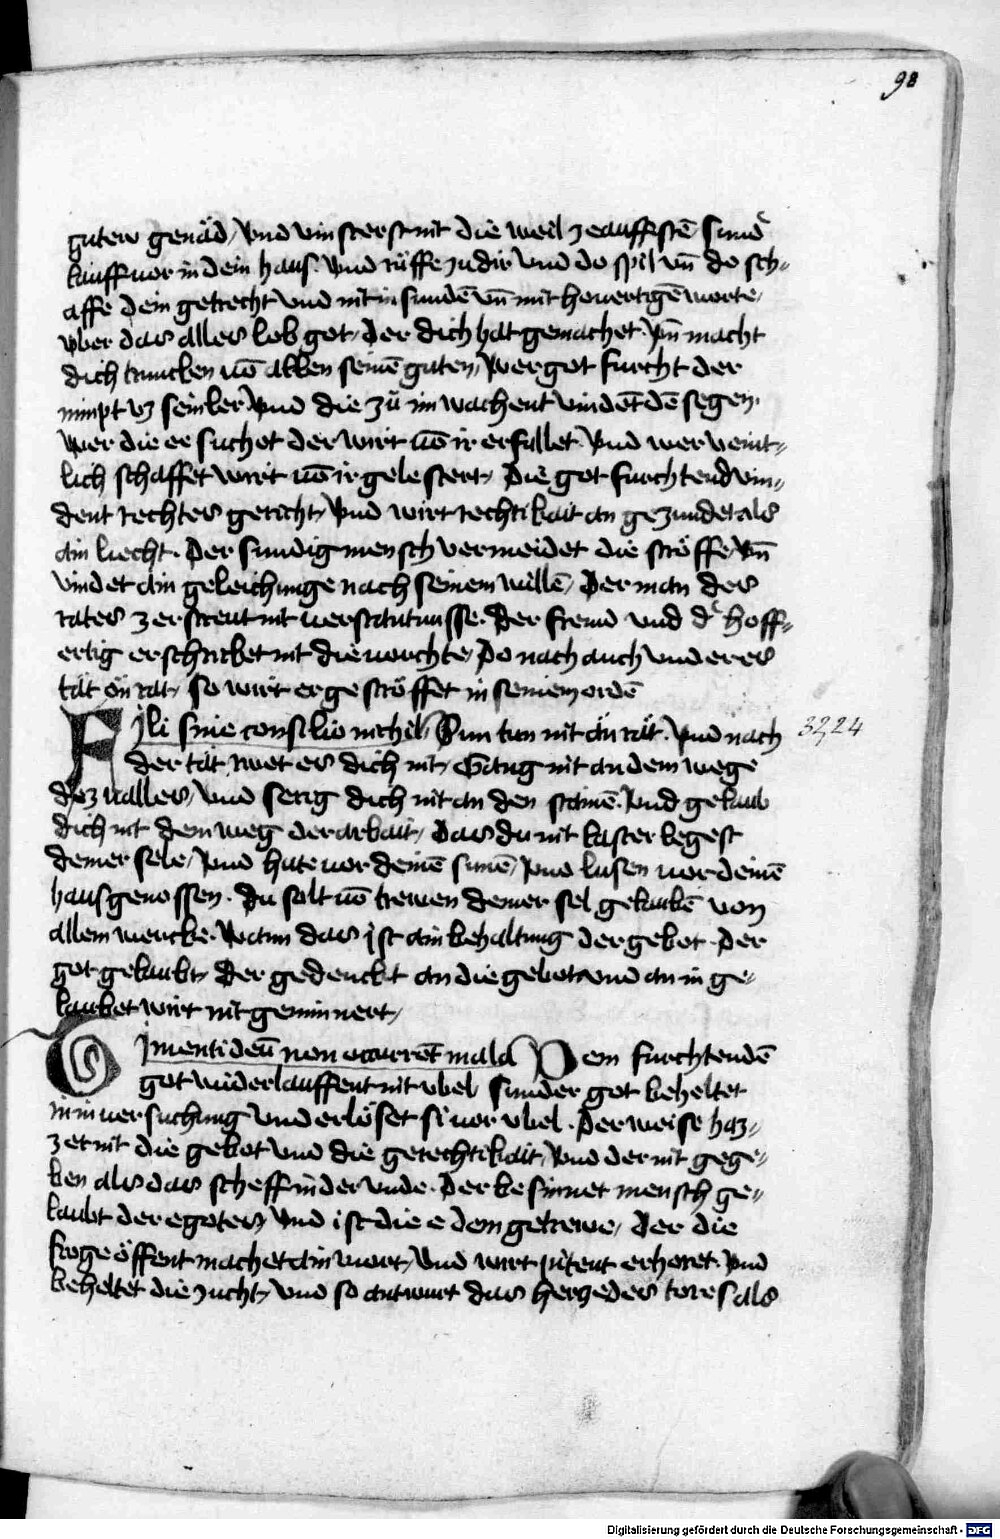 98
guten genäd / vnd vinsterst nit die weil ze auffstē sund
lauff vor in dein haus. vnd rüffe zu dir vnd do spil vn̄ do sch-
affe dein getrecht vnd nit in sundē vn̄ mit houertigē worte /
vber das alles lob got / Der dich hat gemachet. vn̄ macht
dich truncken uō allen seinē guten / wer got furcht der
nimpt vz sein ler vnd die zů im wachent vindēt dē segen.
wer die e suchet der wirt uō ir erfullet. vnd wer veint-
lich schaffet wirt uō ir gelestert / Die got furchtend vin-
dent rechtes gericht / vnd wirt rechtikait an gezundet als
ain liecht. Der sundig mensch vermeidet die ströffe vn̄
vindet ain geleichunge nach seinem willē / Der man des
rates zerstreut nit uerstantnusse. Der fremd vnd d' hoff-
ertig erschricket nit die uorchte / Do nach auch vnd er es
tät ön rat / so wirt er geströffet in seinem ordē
Fili sine consilio nichil Sun tun nit än rät. vnd nach 32,24
der tät rwet es dich nit / Gang nit an dem wege
dez ualles / vnd setig dich nit an den stainē. vnd gelaub
dich nit dem weg der arbait / Das du nit laster legest
deiner sele / vnd hute vor deinē sunē / vnd lusen vor deinē
hausgenossen. du solt uō trewen deiner sel gelaubē von
allem wercke. Wann das ist ain behaltung der gebot. Der
got gelaubt / der gedenckt an die gebot vnd an in ge-
laubet wirt nit geminnert /
Timenti deū non occurrēt mala Dem furchtendē
got widerlauffent nit vbel sunder got beheltet
in in uersuchung vnd erlöset si vor vbel. Der weise haz-
zet nit die gebot vnd die gerechtikait / vnd der nit gege-
ben als das scheff in der vnde. Der besinnet mensch ge-
laubt der e gotes / vnd ist die e dem getrewe / Der die
froge öffent machet ain wort / vnd wirt pitent erhoret. vnd
beheltet die zucht / vnd so antwurt das hercze des tores als
Digitalisierung gefördert durch die Deutsche Forschungsgemeinschaft - DFG